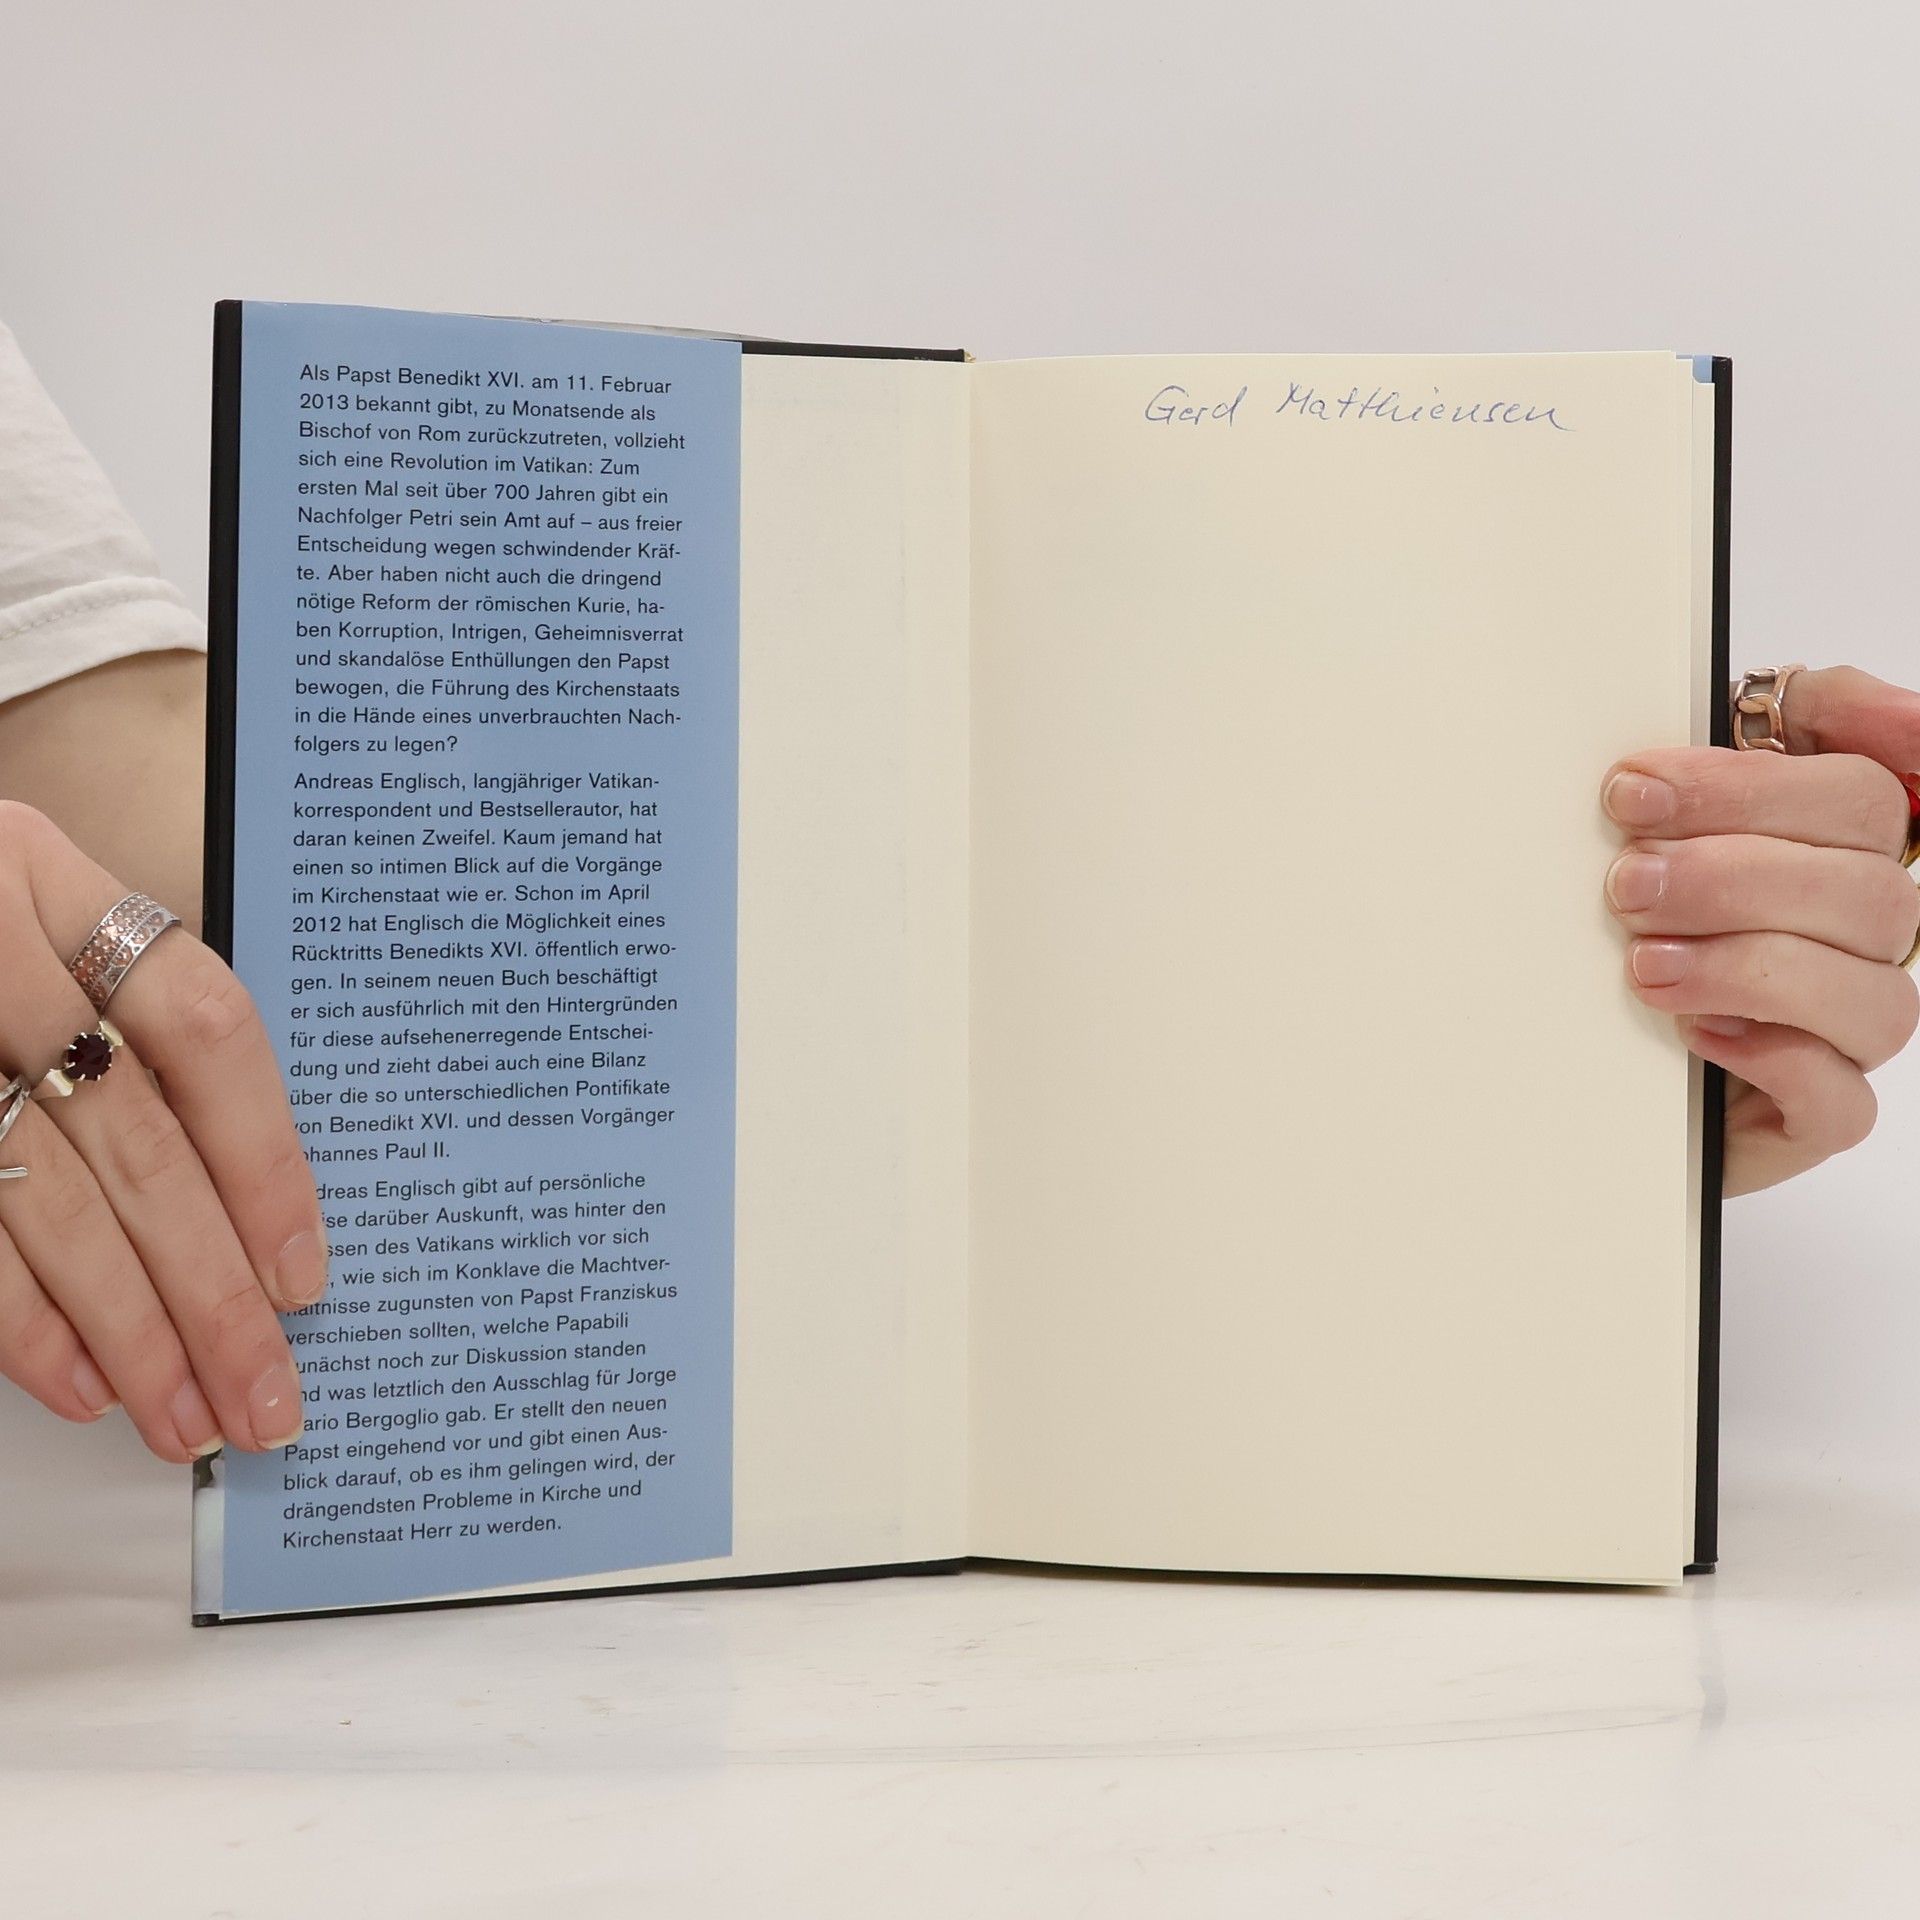 Als Papst Benedikt XVI. am 11. Februar
2013 bekannt gibt, zu Monatsende als
Bischof von Rom zurückzutreten, vollzieht
sich eine Revolution im Vatikan: Zum
ersten Mal seit über 700 Jahren gibt ein
Nachfolger Petri sein Amt auf – aus freier
Entscheidung wegen schwindender Kräf-
te. Aber haben nicht auch die dringend
nötige Reform der römischen Kurie, ha-
ben Korruption, Intrigen, Geheimnisverrat
und skandalöse Enthüllungen den Papst
bewogen, die Führung des Kirchenstaats
in die Hände eines unverbrauchten Nach-
folgers zu legen?
Andreas Englisch, langjähriger Vatikan-
korrespondent und Bestsellerautor, hat
daran keinen Zweifel. Kaum jemand hat
einen so intimen Blick auf die Vorgänge
im Kirchenstaat wie er. Schon im April
2012 hat Englisch die Möglichkeit eines
Rücktritts Benedikts XVI. öffentlich erwo-
gen. In seinem neuen Buch beschäftigt
er sich ausführlich mit den Hintergründen
für diese aufsehenerregende Entschei-
dung und zieht dabei auch eine Bilanz
über die so unterschiedlichen Pontifikate
von Benedikt XVI. und dessen Vorgänger
Johannes Paul II.
Englisch gibt auf persönliche
darüber Auskunft, was hinter den
des Vatikans wirklich vor sich
wie sich im Konklave die Machtver-
hältnisse zugunsten von Papst Franziskus
verschieben sollten, welche Papabili
zunächst noch zur Diskussion standen
und was letztlich den Ausschlag für Jorge
Mario Bergoglio gab. Er stellt den neuen
Papst eingehend vor und gibt einen Aus-
blick darauf, ob es ihm gelingen wird, der
drängendsten Probleme in Kirche und
Kirchenstaat Herr zu werden.
Gerd Matthiensen